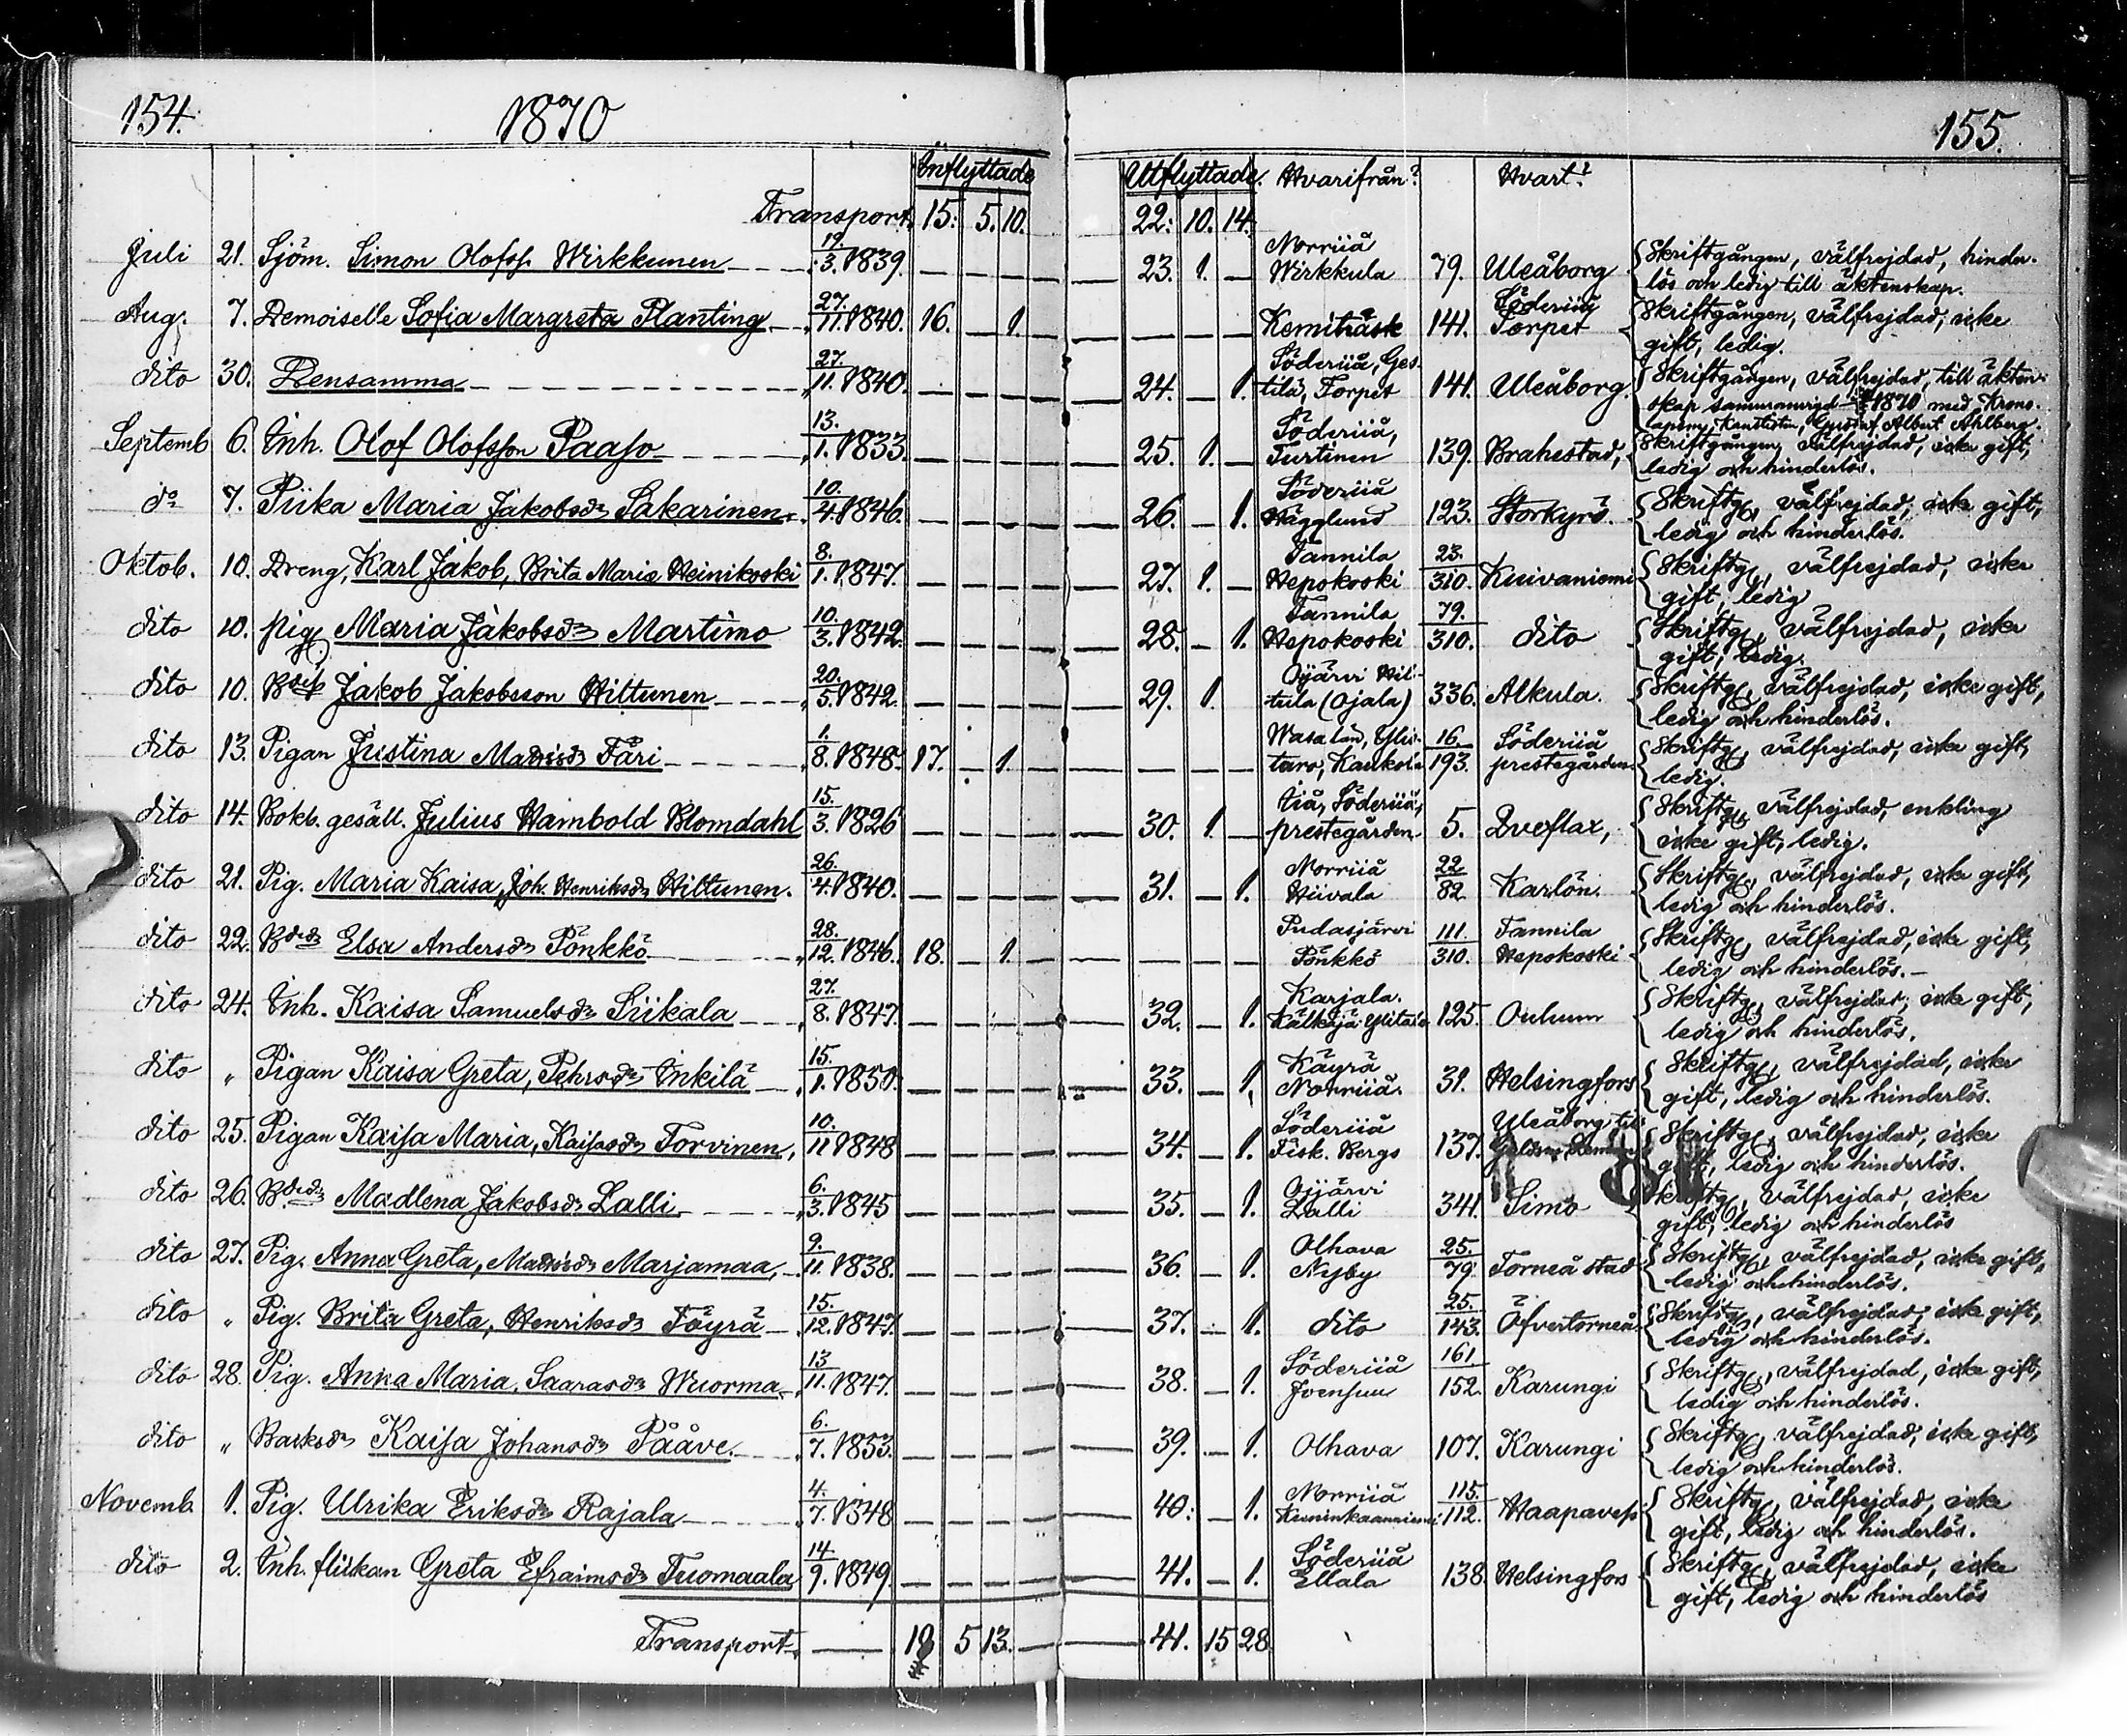 154. 1870 155.
Inflyttade Utflyttade. Hvarifrån? Hvart?
Transport 15. 5. 10. 22. 10. 14.
Juli 21. Sjöm. Simon Olofss. Wirkkunen 19. 3. 1839. — — — — 23. 1. — Norriiå Wirkkula 79. Uleåborg Skriftgången, välfrejdad, hinder-
lös och ledig till äktenskap.
Aug. 7. Demoiselle Sofia Margreta Planting 27. 11. 1840. 16. — 1. — — — — Kemiträsk 141. Söderiiå Torpet Skriftgången, välfrejdad, icke
gift, ledig.
dito 30. Densamma 27. 11. 1840. — — — — 24. — 1. Söderiiå, Ges-
tilä, Torpet 141. Uleåborg. Skriftgången, välfrejdad, till äkten-
skap 1870 med Krono-
Gustaf Albert Ahlberg.
Septemb. 6. Inh. Olof Olofsson Paaso 13. 1. 1833. — — — — 25. 1. — Söderiiå, Turtinen 139. Brahestad, Skriftgången, välfrejdad, icke gift,
ledig och hinderlös.
do 7. Piika Maria Jakobsdr Sakarinen 10. 4. 1846. — — — — 26. — 1. Söderiiå Hägglund 123. Storkyrö. Skriftg, välfrejdad, icke gift,
ledig och hinderlös.
Oktob. 10. Dreng, Karl Jakob, Brita Maria Heinikoski 8. 1. 1847. — — — — 27. 1. — Tannila Hepokoski 23. 310. Kuivaniemi Skriftg, välfrejdad, icke
gift, ledig
dito 10. pig Maria Jakobsdr Martimo 10. 3. 1842. — — — — 28. — 1. Tannila Hepokoski 79. 310. dito Skriftg, välfrejdad, icke
gift, ledig.
dito 10. Jakob Jakobsson Hiltunen 20. 5. 1842. — — — — 29. 1. Oijärvi Hil-
tula (Ojala) 336. Alkula. Skriftg, välfrejdad, icke gift,
ledig och hinderlös.
dito 13. Pigan Justina Matsdr Färi 1. 8. 1848. 17. — 1. — — — — Wasa län, Ylis-
taro, Kaukola 16. 193. Söderiiå prestegården. Skriftg, välfrejdad, icke gift,
ledig.
dito 14. Bokb. gesäll. Julius Hambold Blomdahl 15. 3. 1826 — — — — 30. 1. — Iiå, Söderiiå, prestegården. 5. Qveflax, Skriftg, välfrejdad, enkling
icke gift, ledig.
dito 21. Pig. Maria Kaisa, Joh. Henriksdr Hiltunen. 26. 4. 1840. — — — — 31. — 1. Norriiå Hiivala 22 82. Karlön. Skriftg, välfrejdad, icke gift,
ledig och hinderlös.
dito 22. Elsa Andersdr Pönkkö 28. 12. 1846. 18. — 1. — — — — Pudasjärvi Pönkkö 111. 310. Tannila Hepokoski Skriftg, välfrejdad, icke gift,
ledig och hinderlös.
dito 24. Inh. Kaisa Samuelsdr Siikala 27. 8. 1847. — — — — 32. — 1. Karjala. 125. Oulunn Skriftg, välfrejdad, icke gift,
ledig och hinderlös.
dito „ Pigan Kaisa Greta, Pehrsdr Inkilä 15. 1. 1850. — — — — 33. — 1. Käyrä Norriiå. 31. Helsingfors Skriftg, välfrejdad, icke
gift, ledig och hinderlös.
dito 25. Pigan Kaisa Maria, Kaisasdr Torvinen, 10. 11 1848 — — — — 34. — 1. Söderiiå Fisk. Bergs 137. Uleåborg till Skriftg, välfrejdad, icke
gift, ledig och hinderlös.
dito 26. Madlena Jakobsdr Lalli 6. 3. 1845 — — — — 35. — 1. Oijärvi Lalli 341. Simo Skriftg, välfrejdad, icke
gift, ledig och hinderlös
dito 27. Pig. Anna Greta, Matsdr Marjamaa, 9. 11. 1838. — — — — 36. — 1. Olhava Nyby 25. 79. Torneå stad Skriftg, välfrejdad, icke gift,
ledig och hinderlös.
dito „ Pig. Brita Greta, Henriksdr Töyrä 15. 12. 1847. — — — — 37. — 1. dito 25. 143. Öfvertorneå Skriftg, välfrejdad, icke gift,
ledig och hinderlös.
dito 28. Pig. Anna Maria, Saarasdr Wuorma 13 11. 1847. — — — — 38. — 1. Söderiiå Joensuu 161 152. Karungi Skriftg, välfrejdad, icke gift,
ledig och hinderlös.
dito „ Kaisa Johansdr Pååve. 6. 7. 1853. — — — — 39. — 1. Olhava 107. Karungi Skriftg, välfrejdad, icke gift,
ledig och hinderlös.
Novemb. 1. Pig. Ulrika Eriksdr Rajala 4. 7. 1848 — — — — 40. — 1. Norriiå 115. 112. Haapavesi Skriftg, välfrejdad, icke
gift, ledig och hinderlös.
dito 2. Inh. flickan Greta Efraimsdr Tuomaala 14. 9. 1849. — — — — 41. — 1. Söderiiå Ellala 138. Helsingfors Skriftg, välfrejdad, icke
gift, ledig och hinderlös
Transport 18 5 13. — 41. 15 28.